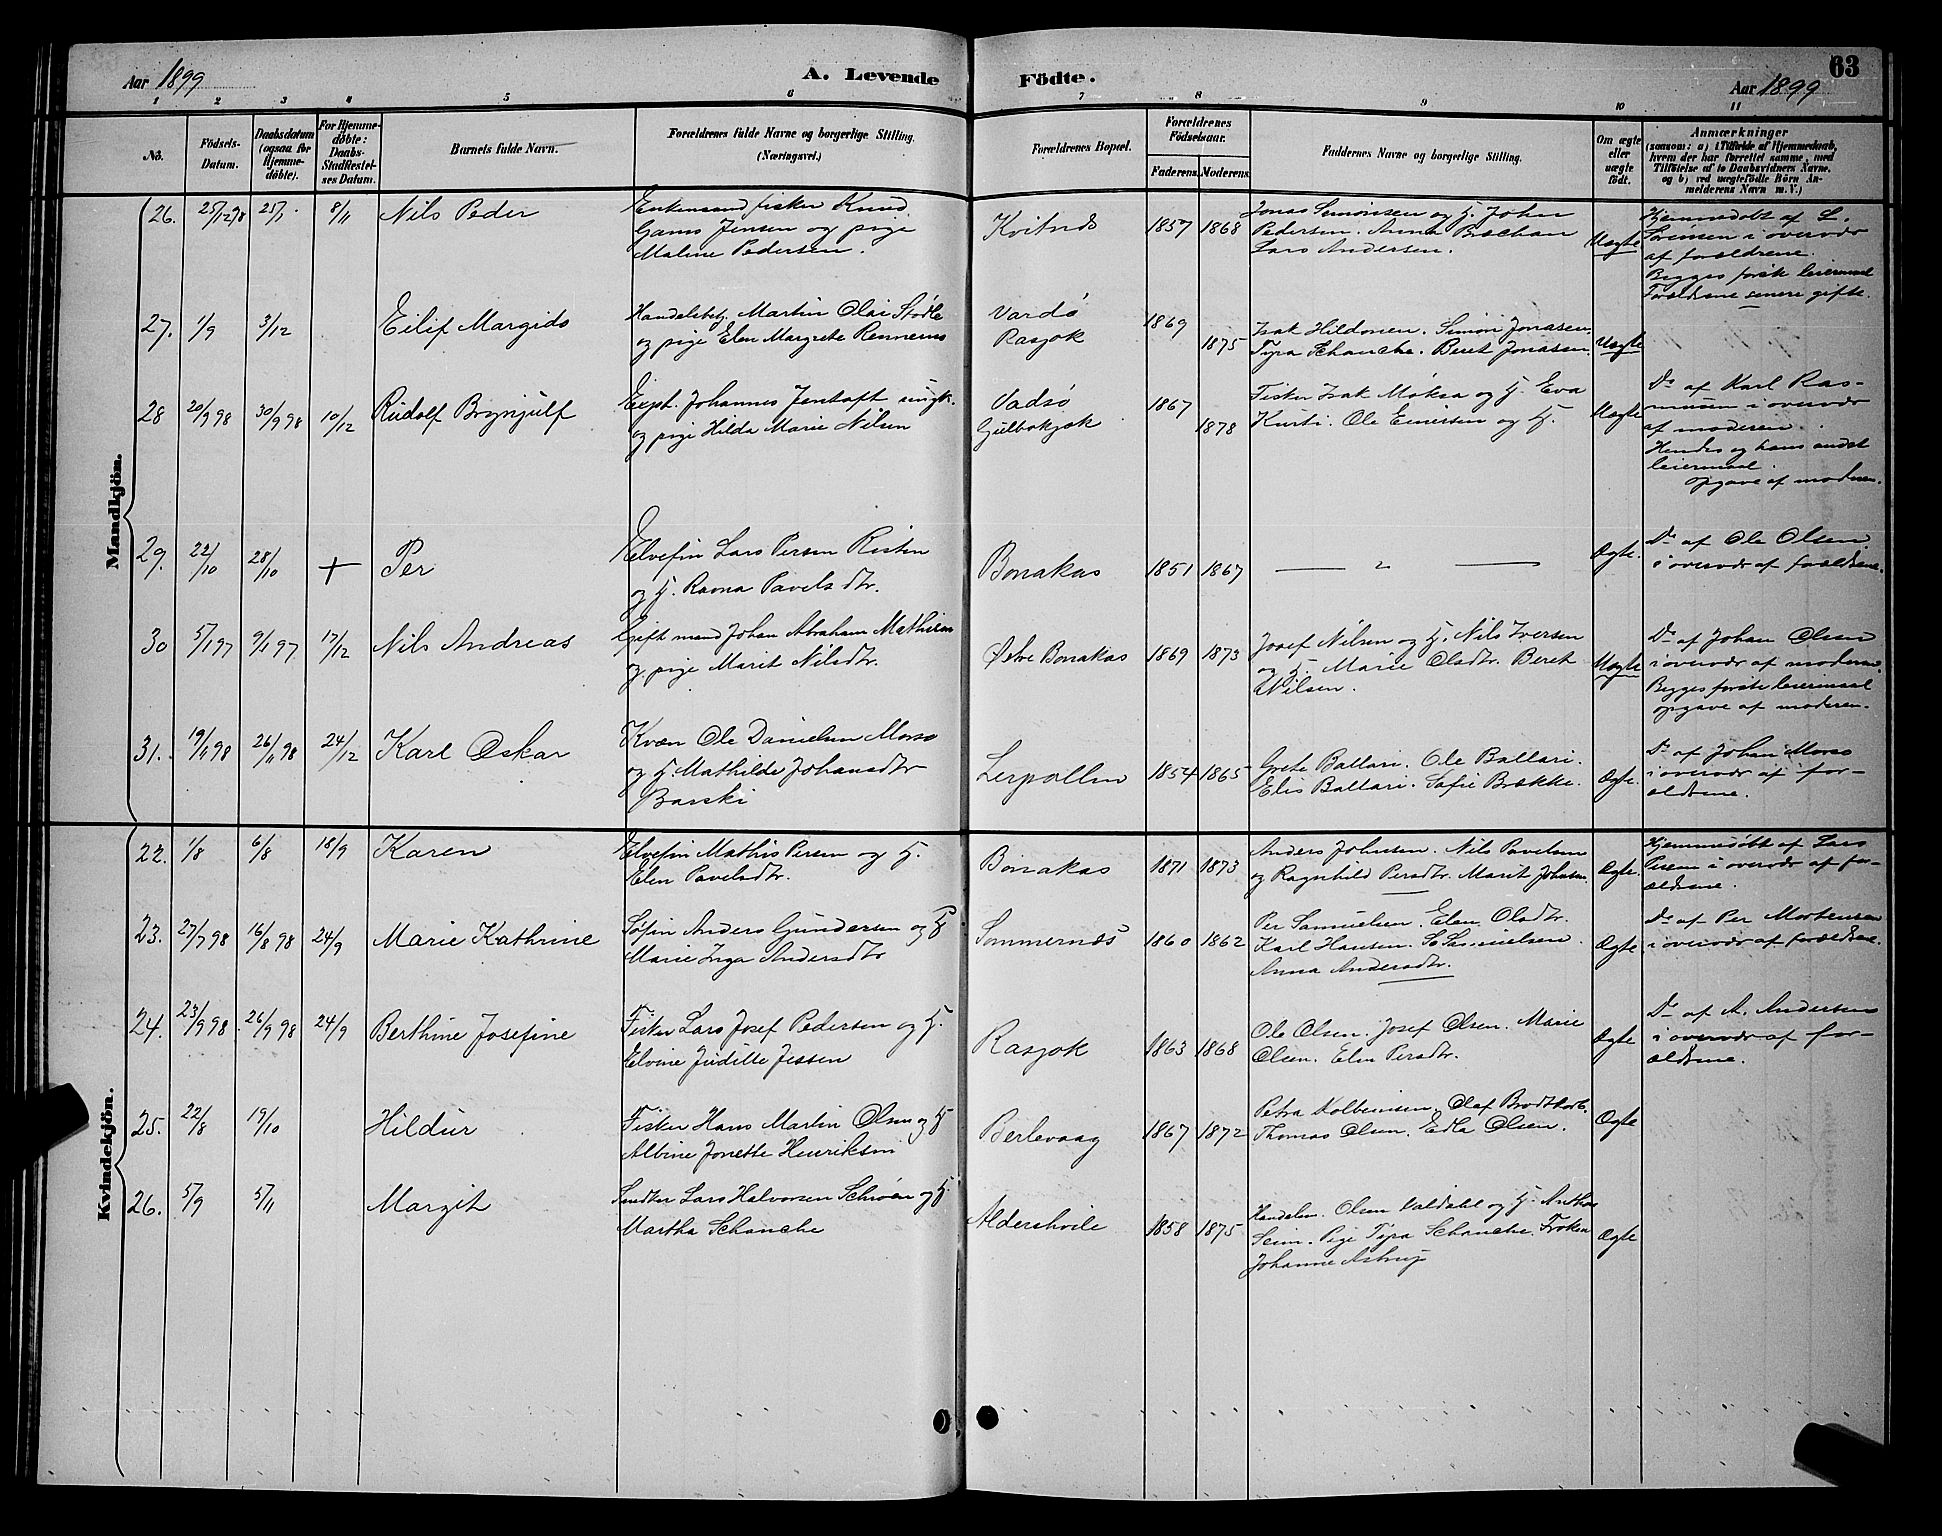 Aar 1899
A. Levende
Födte.
63
Aar 1899
1 2 3 4 5 6 7 8 9 10 11
No.
Födsels-
Datum.
Daabsdatum
(ogsaa for
Hjemme-
döbte).
For Hjemme-
döbte:
Daabs-
Stadfæstel-
ses Datum.
Barnets fulde Navn.
Forældrenes fulde Navne og borgerlige Stilling.
(Næringsvei.)
Forældrenes Bopæl.
Forældrenes
Födselsaar.
Faderens. Moderens.
Faddernes Navne og borgerlige Stilling.
Om ægte
eller
uægte
födt.
Anmærkninger
(saasom: a) i Tilfælde af Hjemmedaab,
hvem der har forrettet samme, med
Tilföielse af to Daabsvidners Navne,
og b) ved uægtefödte Börn An-
melderens Navn m. V.)
Mandkjön.
26. 25/12 98 25/1 8/11 Nils Peder
Enkemand fisker Knud
Gams Jensen og pige
Maline Pedersen.
Kvitnes 1857 1868
Jonas Simonsen og H. John
Pedersen. Anna
Lars Andersen.
Uægte
Hjemmedøbt af L.
Sørensen i overvær
af forældrene.
Begges første leiermaal
Forældrene senere gifte.
27. 1/9 3/12 Eilif Margido
Handelsbetj. Martin Olai Stødle
og pige Elen Margrete Rennernes
Vardø
Rasjok
1869
1875
Isak Hildonen. Simon Jonasen.
Tyra Schanche. Beret Jonasen.
Uægte
28 20/9 98 30/9 98 10/12 Rudolf Brynjulf
Exp. Johannes Jentoft ungk.
og pige Hilda Marie Nilsen
Vadsø
Gulbokjok
1867
1878
Fisker Isak Moksa og H. Eva
Kurti. Ole Einersen og H.
Uægte
Do af Karl Ras-
mussen i overvær
af moderen.
Hendes og hans andet
leiermaal.
opgave af moderen.
29. 22/10 28/10 + Per
Elvefin Lars Persen Risten
og H. Ravna Pavelsdtr.
Bonakas 1851 1867 — " —
Ægte.
Do af Ole Olsen
i overvær af forældrene.
30 5/1 97 9/1 97 17/12 Nils Andreas
Gift mand Johan Abraham Mathisen
og pige Marit Nilsdtr.
Østre Bonakas 1869 1873
Josef Nilsen og H. Nils Iversen
og H. Marie Olsdtr. Beret
Nilsen.
Uægte
Do af Johan Olsen
i overvær af moderen.
Begges første leiermaal
opgave af moderen.
31. 19/11 98 26/11 98 24/12 Karl Oskar
Kvæn Ole Danielsen Morso
og H Mathilde Johansdtr
Barski
Lerpollen 1854 1865
Grete Ballari. Ole Ballari.
Elis Ballari. Sofie Brække.
Ægte.
Do af Johan Morso
i overvær af for-
ældrene.
Kvindekjön.
22. 1/8 6/8 18/9 Karen
Elvefin Mathis Persen og H.
Elen Pavelsdtr.
Bonakas 1871 1873
Anders Johnsen. Nils Pavelsen
og Ragnhild Persdtr. Marit Johnsen.
Ægte.
Hjemmedøbt af Lars
Persen i overvær af for-
ældrene.
23. 27/7 98 16/8 98 24/9 Marie Kathrine
Søfin Anders Gundersen og H
Marie Inga Andersdtr
Sommernæs 1860 1862
Per Samuelsen. Elen Olsdtr.
Karl Hansen. S. Samuelsen.
Anna Andersdtr.
Ægte
Do af Per Mortensen
i overvær af forældrene.
24. 23/9 98 26/9 98 24/9 Berthine Josefine
Fisker Lars Josef Pedersen og H.
Elvine Juditte Jessen
Rasjok 1863 1868
Ole Olsen. Josef Olsen. Marie
Olsen. Elen Persdtr.
Ægte
Do af A. Andersen
i overvær af for-
ældrene.
25. 22/8 19/10 Hildur
Fisker Hans Martin Olsen og H
Albine Jonette Henriksen
Berlevaag 1867 1872
Petra Kolbensen. Olaf
Thomas Olsen. Edla Olsen.
Ægte
26. 5/9 5/11 Margit
Lars Halvorsen Schrøen og H.
Martha Schanche
Aldershvile 1858 1875
Handelsm. Olsen Valdahl og H. Anthon
Seim. Pige Tyra Schanche. Frøken
Johanne Astrup
Ægte